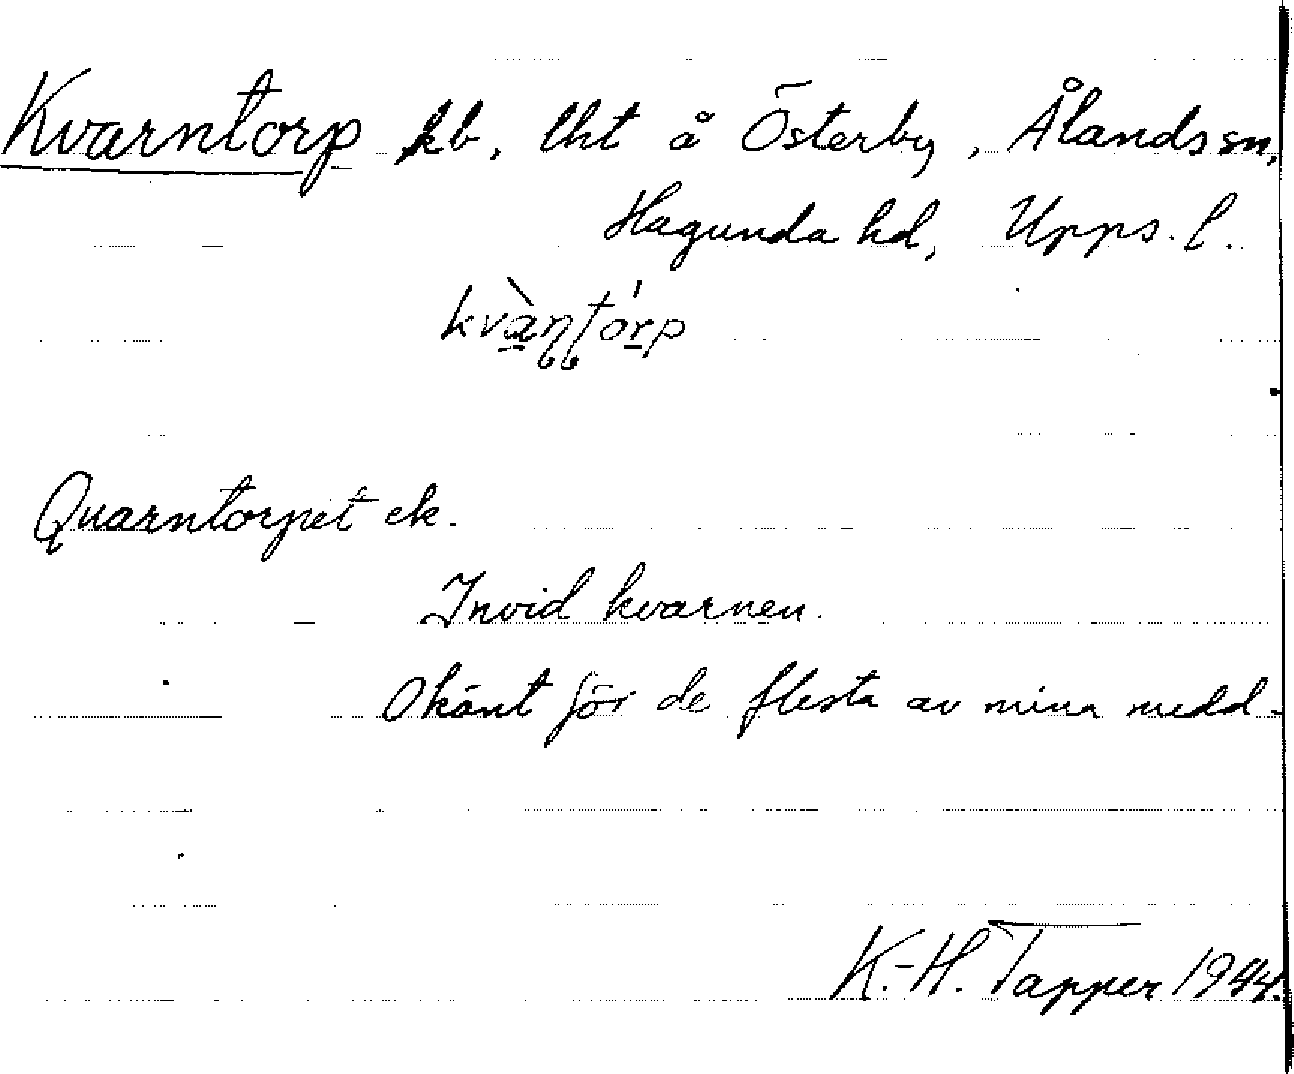 Kvarntorp kb, lht å Österby, Ålands sn,
Hagunda hd, Upps. l..
kvàɳʈórp
Quarntorpet ek.
Invid kvarnen.
Okänt för de flesta av mina medd.
K.-H. Tapper 1944.